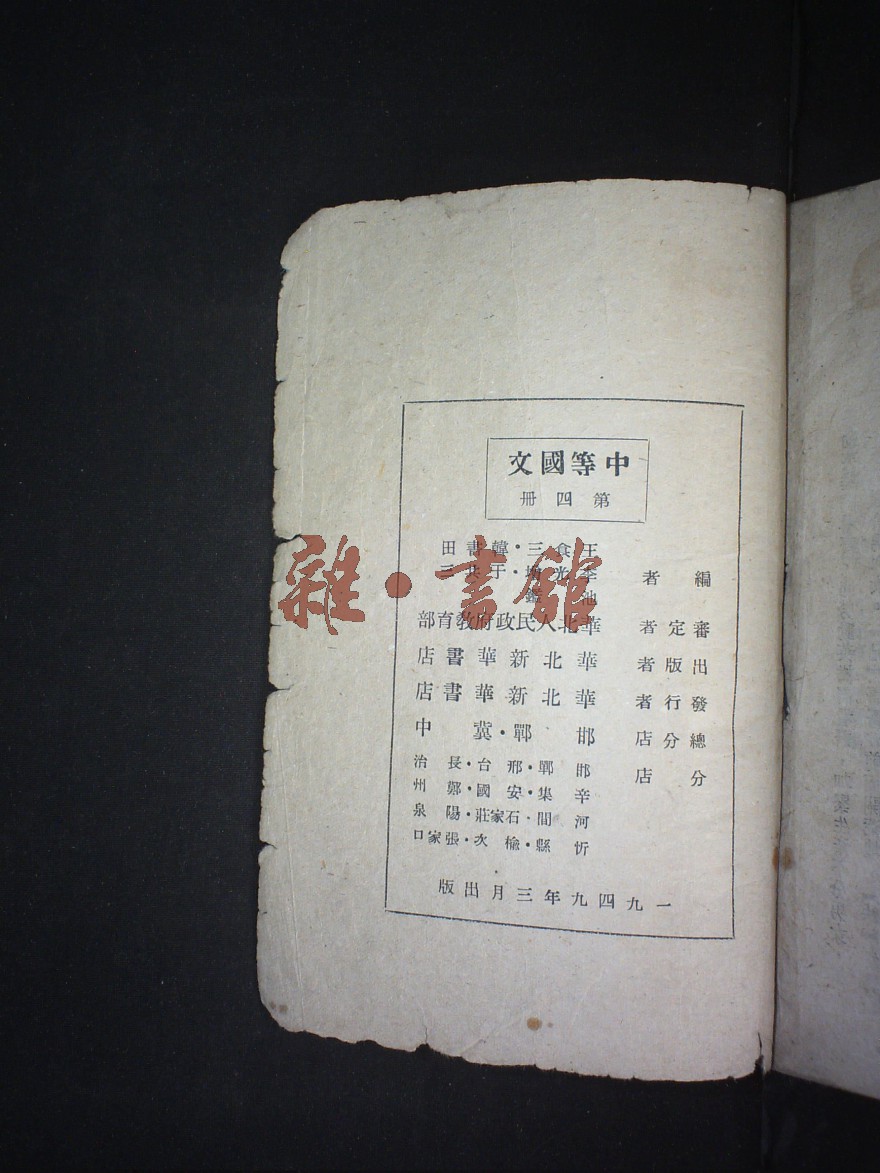 中等國文
第四册
編者 王食三·韓書田
李光
審定者 華北人民政府教育部
出版者 華北新華書店
發行者 華北新華書店
總分店 邯鄲·冀中
分店 邯鄲·邢台·長治
辛集·安國·鄭州
河間·石家莊·陽泉
忻縣·榆次·張家口
一九四九年三月出版
雜·書館